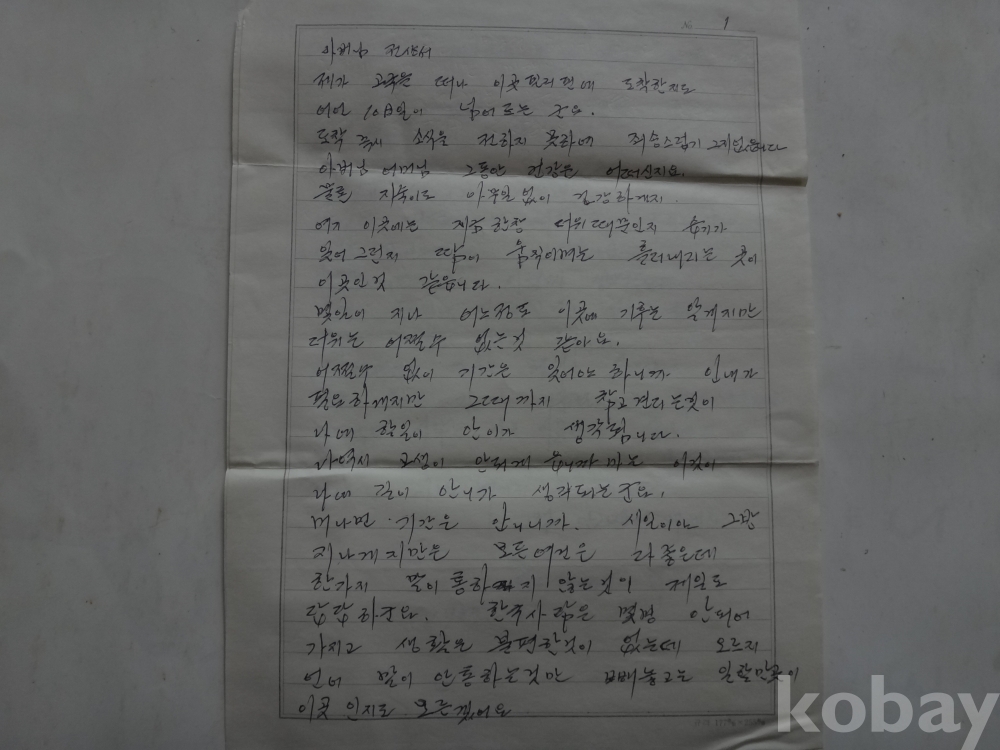 № 1
아버님 전상서
제가 고국을 떠나 이곳 도착한지도
어언 10日일이 넘어로는 군요.
도착 즉시 소식을 전하지 못하여 죄송스럽기 그지없읍니다
아버님 어머님 그동안 건강은 어떠신지요.
물론 지속이로 아무일없이 건강하게지
여기 이곳에는 지금 한창 더위때문인지 습기가
있어 그런지 땀이 움직이며는 흘러내리는 곳이
이곳인것 같읍니다.
몇일이 지나 어느정도 이곳에 기후는 알게지만
더위는 어쩔수 없는것 같아요.
어쩔수 없이 기간은 있어야 하니까 인내가
필요하게지만 그때까지 참고 견디는것이
나에 할일이 안이가 생각됩니다.
나역시 고생이 안되게 습니까 마는 이것이
나에 길이 안니가 생각되는군요.
머나먼 기간은 안니니까. 시일이야 그만
지나게지만은 모든여건은 다좋은데
한가지 말이 통하지 않는것이 제일로
답답하군요. 한국사람은 몇명 안되어
가지고 생활은 불편한것이 없는데 오르지
언어 말이 안통하는것만 빼놓고는 일할만곳이
이곳 인지도 모르겠어요
kobay